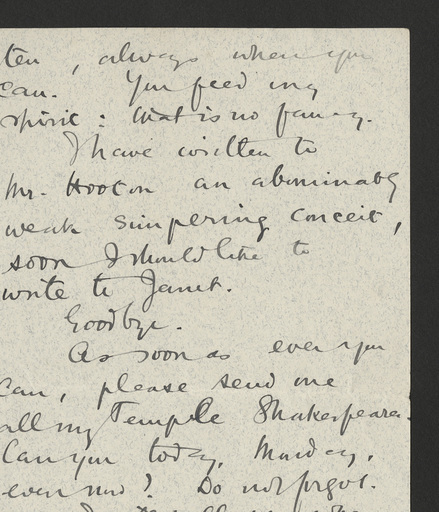 ten, always when you
can. You feed my
spirit: that is no fancy.
I have written to
Mr. Hooton an abominably
weak simpering conceit,
soon I should like to
write to Janet.
Goodbye.
As soon as ever you
can, please send me
all my Temple Shakespeare.
Can you today, Monday,
even now? Do not forget.